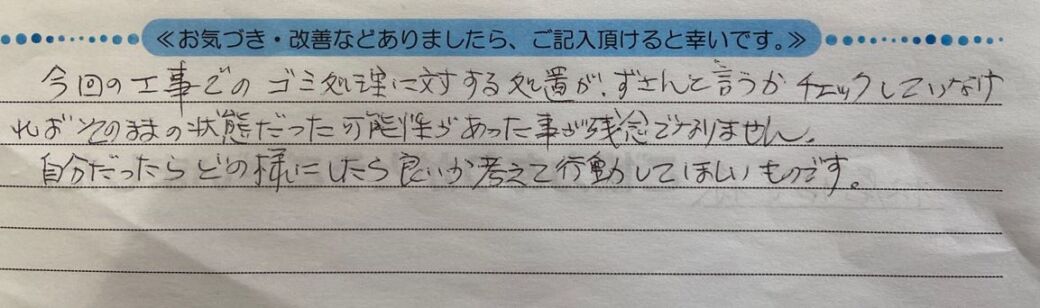 ≪お気づき・改善などありましたら、ご記入頂けると幸いです。≫
今回の工事でのゴミ処理に対する処置が、ずさんと言うかチェックしていなけ
ればそのままの状態だった可能性があった事が残念でなりません。
自分だったらどの様にしたら良いか考えて行動してほしいものです。